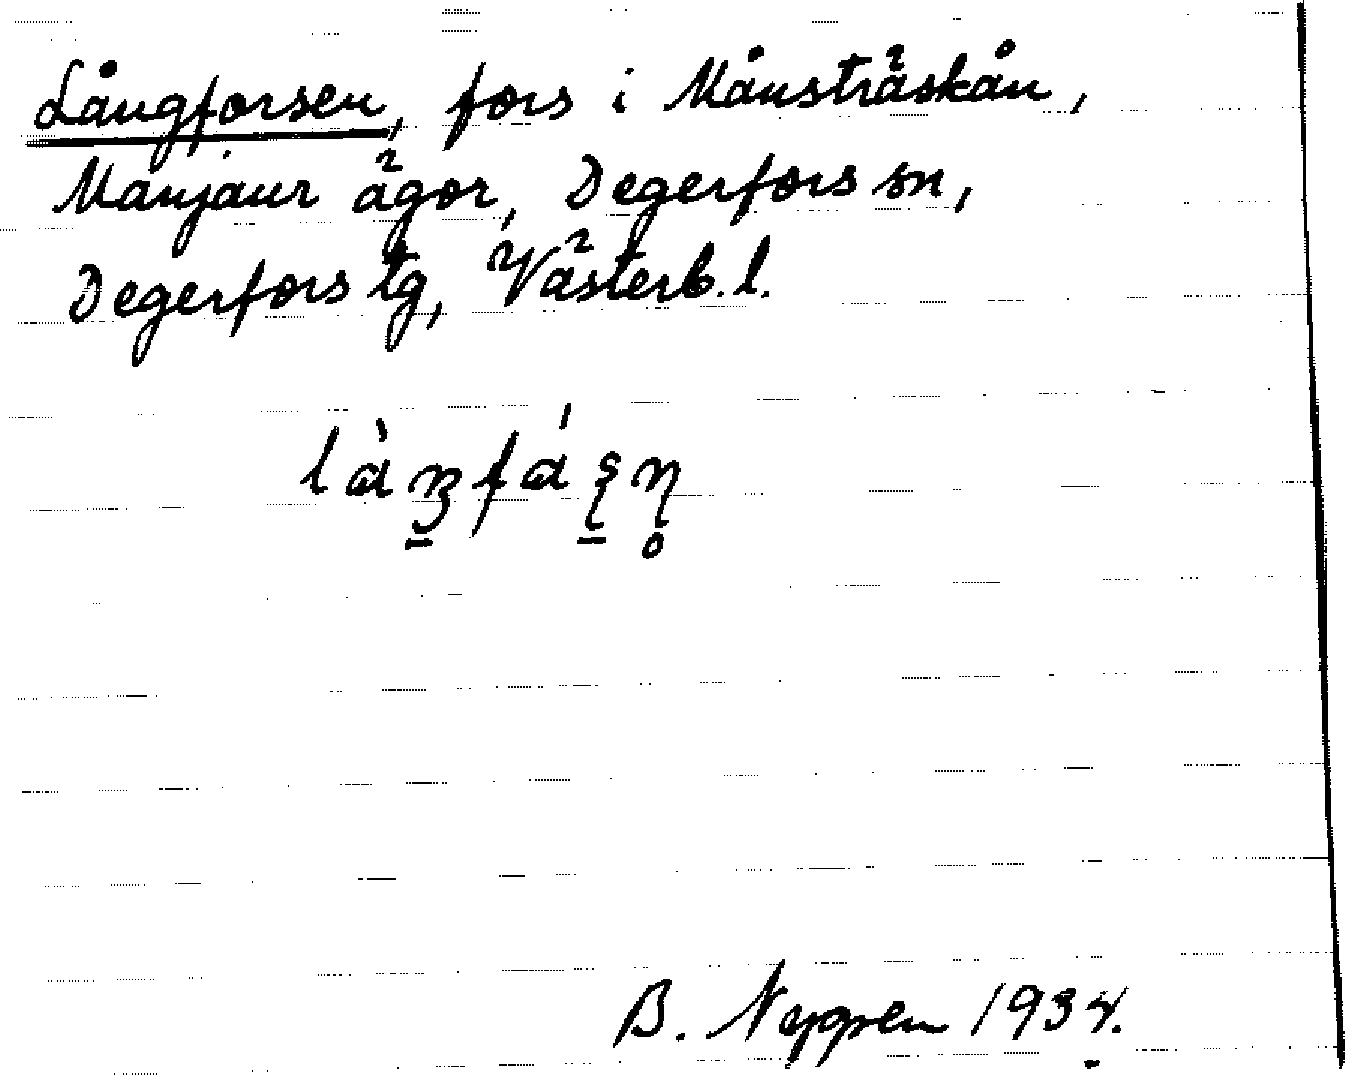 Långforsen, fors i Månsträskån,
Manjaur ägor, Degerfors sn,
Degerfors tg, Västerb. l.
B. Neppen 1934.